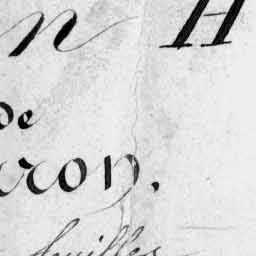 n H
de
rron.
feuilles